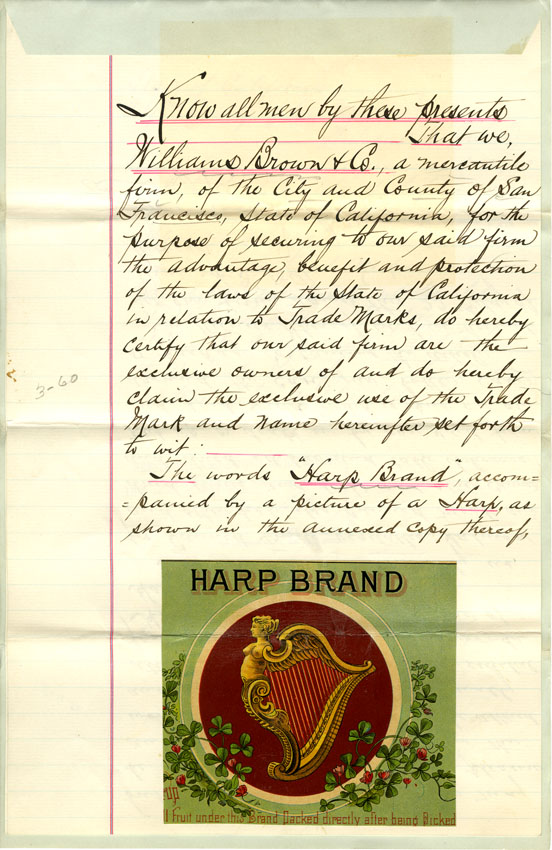 Know all men by these presents
That we,
Williams Brown & Co., a mercantile
firm, of the City and County of San
Francisco, State of California, for the
purpose of securing to our said firm
the advantage, benefit and protection
of the laws of the State of California
in relation to Trade Marks, do hereby
certify that our said firm are the
exclusive owners of and do hereby
claim the exclusive use of the Trade
Mark and name hereinafter set forth
to wit:
The words "Harp Brand", accom=
=panied by a picture of a Harp, as
shown in the annexed copy thereof,
3-60
HARP BRAND
up
l Fruit under this Brand Packed directly after being Picked